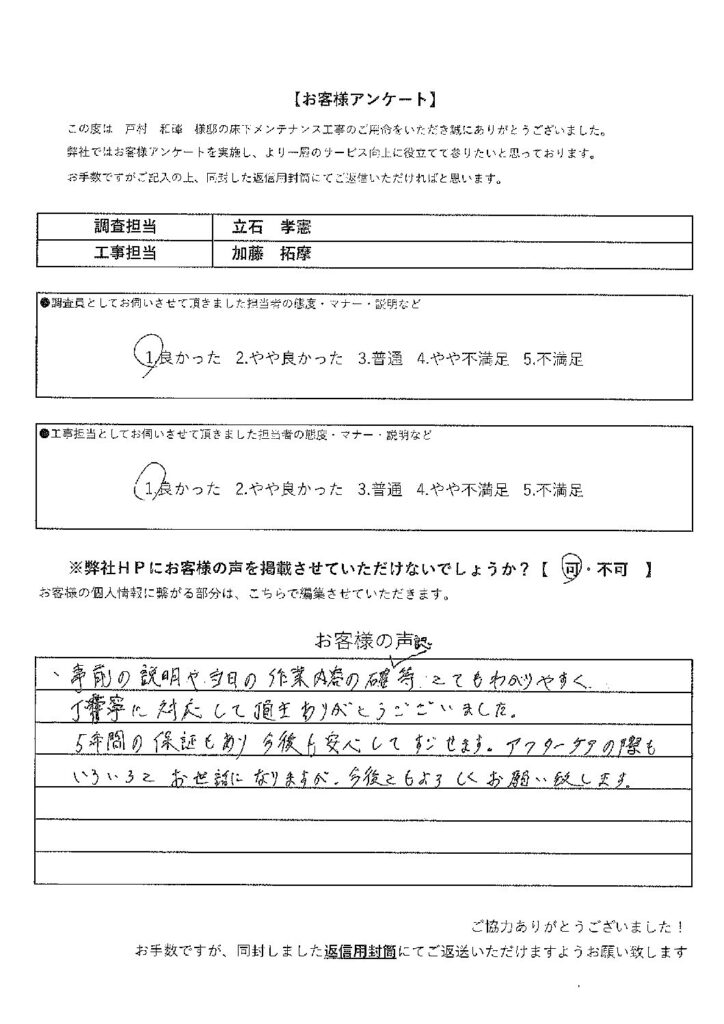 【お客様アンケート】
この度は 戸村 和 様邸の床下メンテナンス工事のご用命をいただき誠にありがとうございました。
弊社ではお客様アンケートを実施し、より一層のサービス向上に役立てて参りたいと思っております。
お手数ですがご記入の上、同封した返信用封筒にてご返信いただければと思います。
調査担当 立石 孝憲
工事担当 加藤 拓摩
●調査員としてお伺いさせて頂きました担当者の態度・マナー・説明など
1.良かった 2.やや良かった 3.普通 4.やや不満足 5.不満足
●工事担当としてお伺いさせて頂きました担当者の態度・マナー・説明など
1.良かった 2.やや良かった 3.普通 4.やや不満足 5.不満足
※弊社HPにお客様の声を掲載させていただけないでしょうか？【 可・不可 】
お客様の個人情報に繋がる部分は、こちらで編集させていただきます。
お客様の声
、事前の説明や当日の作業内容の確認等 とてもわかりやすく
丁寧に対応して頂きありがとうございました。
5年間の保証もあり今後も安心してすごせます。アフターケアの際も
いろいろと お世話になりますが、今後ともよろしくお願い致します。
ご協力ありがとうございました！
お手数ですが、同封しました返信用封筒にてご返送いただけますようお願い致します